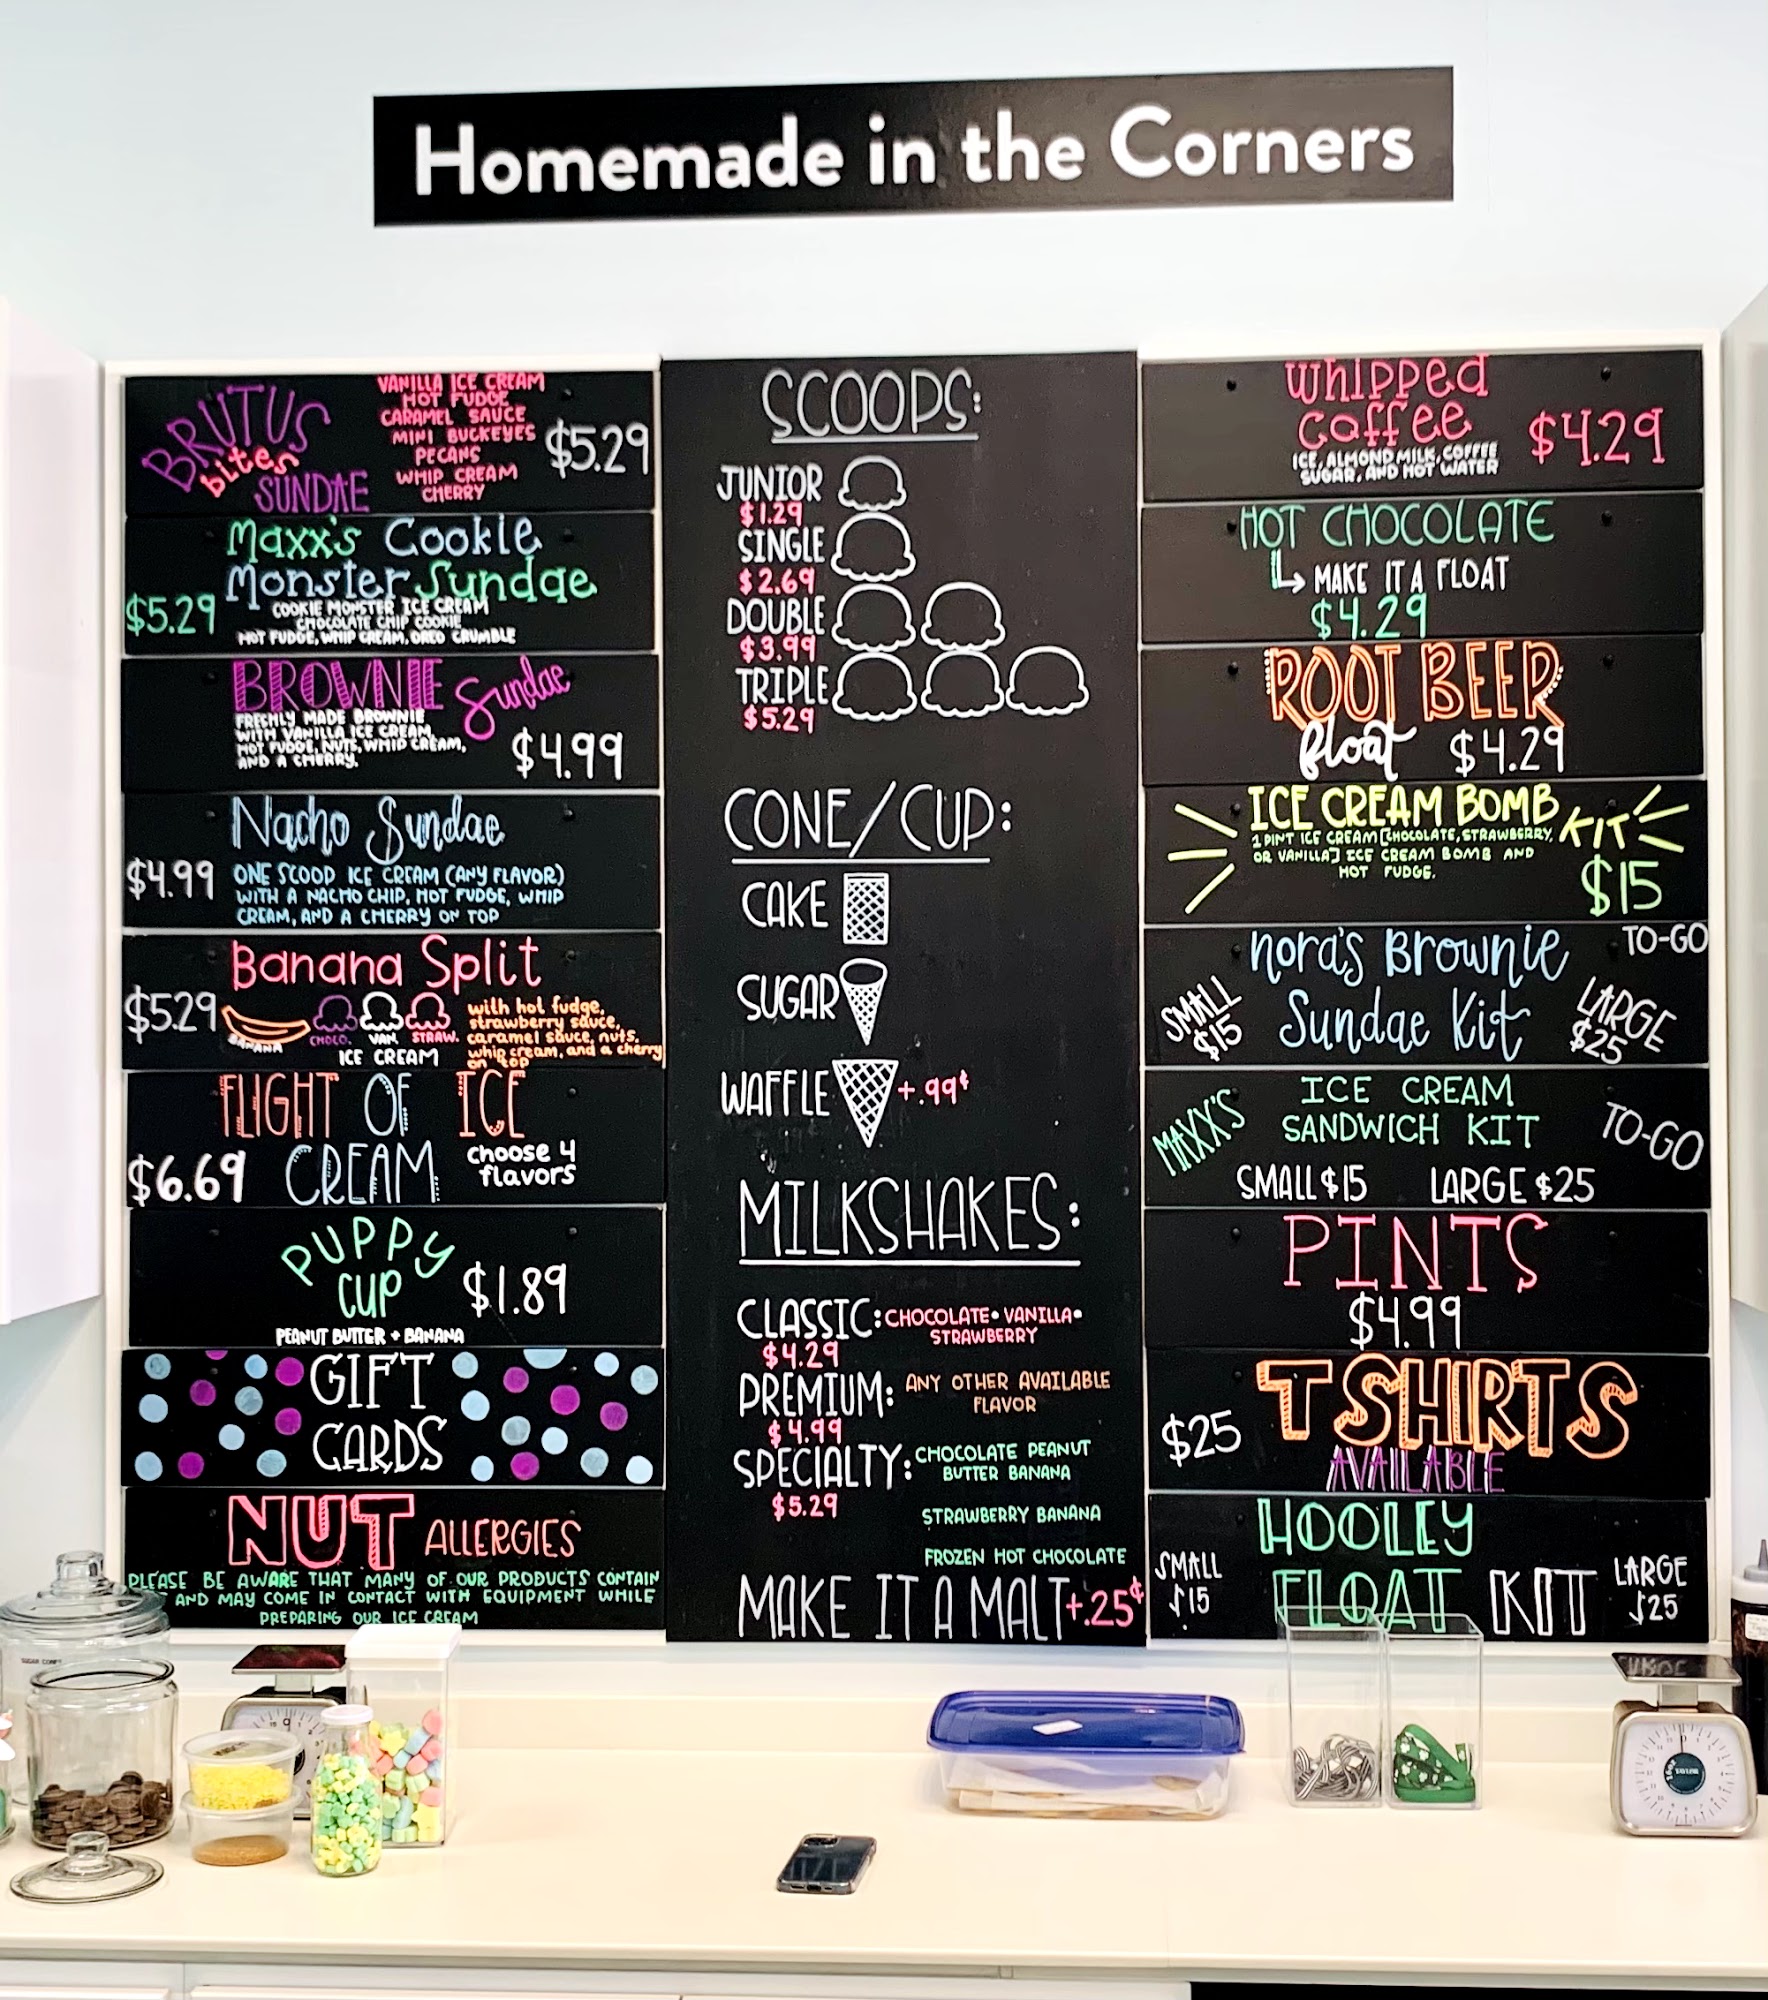 Homemade in the Corners
BRUTUS
bites
SUNDAE
VANILLA ICE CREAM
HOT FUDGE
CARAMEL SAUCE
MINI BUCKEYES
PECANS
WHIP CREAM
CHERRY
$5.29
Maxx's Cookie
Monster Sundae
$5.29
COOKIE MONSTER ICE CREAM
CHOCOLATE CHIP COOKIE
HOT FUDGE, WHIP CREAM, OREO CRUMBLE
BROWNIE Sundae
FRESHLY MADE BROWNIE
WITH VANILLA ICE CREAM,
HOT FUDGE, NUTS, WHIP CREAM,
AND A CHERRY.
$4.99
Nacho Sundae
$4.99
ONE SCOOP ICE CREAM (ANY FLAVOR)
WITH A NACHO CHIP, HOT FUDGE, WHIP
CREAM, AND A CHERRY ON TOP
Banana Split
$5.29
BANANA
CHOCO. VAN. STRAW.
ICE CREAM
with hot fudge,
strawberry sauce,
caramel sauce, nuts,
whip cream, and a cherry
on top
FLIGHT OF ICE
CREAM
$6.69
choose 4
flavors
PUPPY
CUP
$1.89
PEANUT BUTTER + BANANA
GIFT
CARDS
NUT ALLERGIES
PLEASE BE AWARE THAT MANY OF OUR PRODUCTS CONTAIN
AND MAY COME IN CONTACT WITH EQUIPMENT WHILE
PREPARING OUR ICE CREAM
SCOOPS:
JUNIOR
$1.29
SINGLE
$2.69
DOUBLE
$3.99
TRIPLE
$5.29
CONE/CUP:
CAKE
SUGAR
WAFFLE +.99¢
MILKSHAKES:
CLASSIC: CHOCOLATE • VANILLA •
STRAWBERRY
$4.29
PREMIUM: ANY OTHER AVAILABLE
FLAVOR
$4.99
SPECIALTY: CHOCOLATE PEANUT
BUTTER BANANA
$5.29
STRAWBERRY BANANA
FROZEN HOT CHOCOLATE
MAKE IT A MALT +.25¢
Whipped
Coffee
$4.29
ICE, ALMOND MILK, COFFEE
SUGAR, AND HOT WATER
HOT CHOCOLATE
MAKE IT A FLOAT
$4.29
ROOT BEER
float $4.29
ICE CREAM BOMB KIT
1 PINT ICE CREAM [CHOCOLATE, STRAWBERRY,
OR VANILLA] ICE CREAM BOMB AND
HOT FUDGE.
$15
nora's Brownie
Sundae Kit
TO-GO
SMALL
$15
LARGE
$25
MAXX'S
ICE CREAM
SANDWICH KIT
TO-GO
SMALL $15 LARGE $25
PINTS
$4.99
T SHIRTS
$25
AVAILABLE
HOOLEY
FLOAT KIT
SMALL
$15
LARGE
$25
TAYLOR